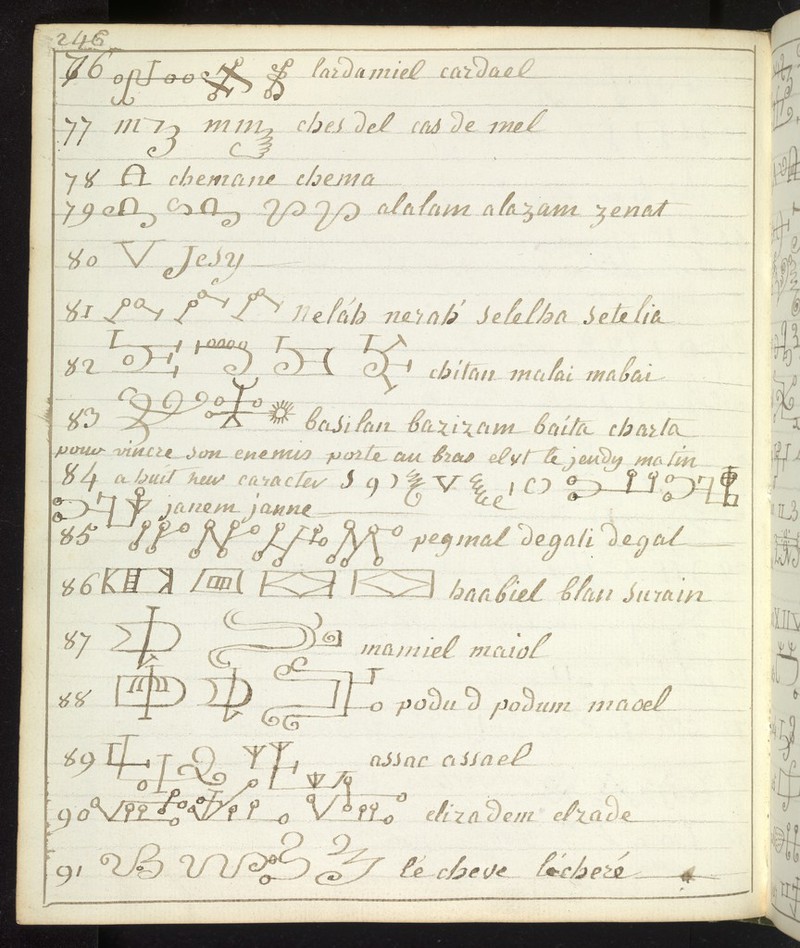 246
76 lardamiel cardael
77 ches del cas de mel
78 chemane chema
79 alalam alazam zenat
80 V Jesy
81 neláh nerah' selelha setelia
82 chitan malai mabai
83 basilan bazizam baita charta
pour vincre son enemis porte au bras elyt le jeudy matin
84 a huit heur caracter
janem janne
85 pegmal degali degal
86 haabiel blan surain
87 mamiel maiol
88 podu d podum maoel
89 assac assael
90 elizadem elzade
91 lé cheve lécheré